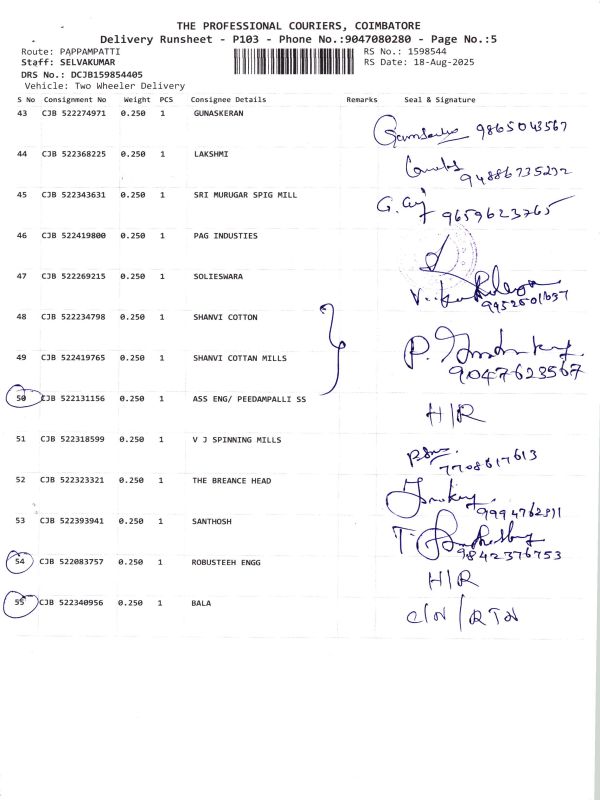 THE PROFESSIONAL COURIERS, COIMBATORE
Delivery Runsheet - P103 - Phone No.:9047080280 - Page No.:5
Route: PAPPAMPATTI RS No.: 1598544
Staff: SELVAKUMAR RS Date: 18-Aug-2025
DRS No.: DCJB159854405
Vehicle: Two Wheeler Delivery
S No Consignment No Weight PCS Consignee Details Remarks Seal & Signature
43 CJB 522274971 0.250 1 GUNASKERAN
9865043567
44 CJB 522368225 0.250 1 LAKSHMI
94886735232
45 CJB 522343631 0.250 1 SRI MURUGAR SPIG MILL
9659623765
46 CJB 522419800 0.250 1 PAG INDUSTIES
47 CJB 522269215 0.250 1 SOLIESWARA
48 CJB 522234798 0.250 1 SHANVI COTTON
49 CJB 522419765 0.250 1 SHANVI COTTAN MILLS
9047623567
50 CJB 522131156 0.250 1 ASS ENG/ PEEDAMPALLI SS
H/R
51 CJB 522318599 0.250 1 V J SPINNING MILLS
7708617613
52 CJB 522323321 0.250 1 THE BREANCE HEAD
53 CJB 522393941 0.250 1 SANTHOSH
9842376753
54 CJB 522083757 0.250 1 ROBUSTEEH ENGG
H/R
55 CJB 522340956 0.250 1 BALA
C/N / RTN